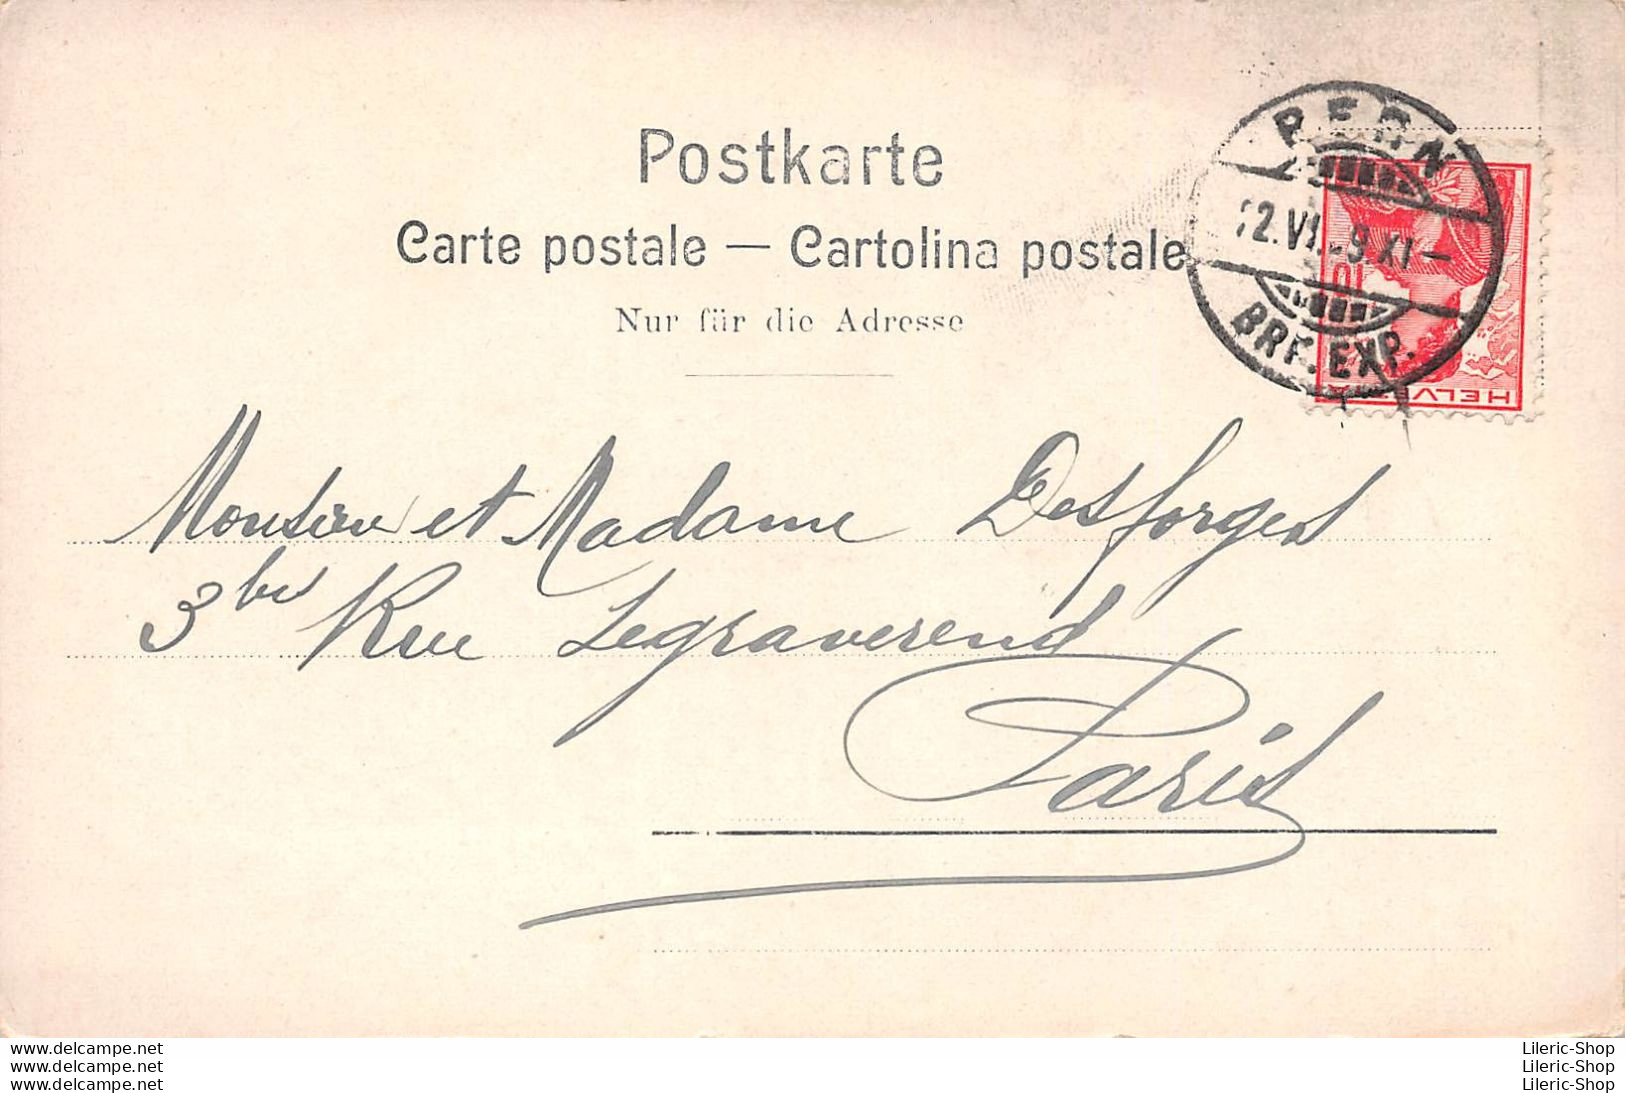 Postkarte
Carte postale — Cartolina postale
Nur für die Adresse
BERN
BRF. EXP.
HELVE
10
Monsieur et Madame Desforges
3 bis Rue Legraverend
Paris
www.delcampe.net
www.delcampe.net
www.delcampe.net
Lileric-Shop
Lileric-Shop
Lileric-Shop